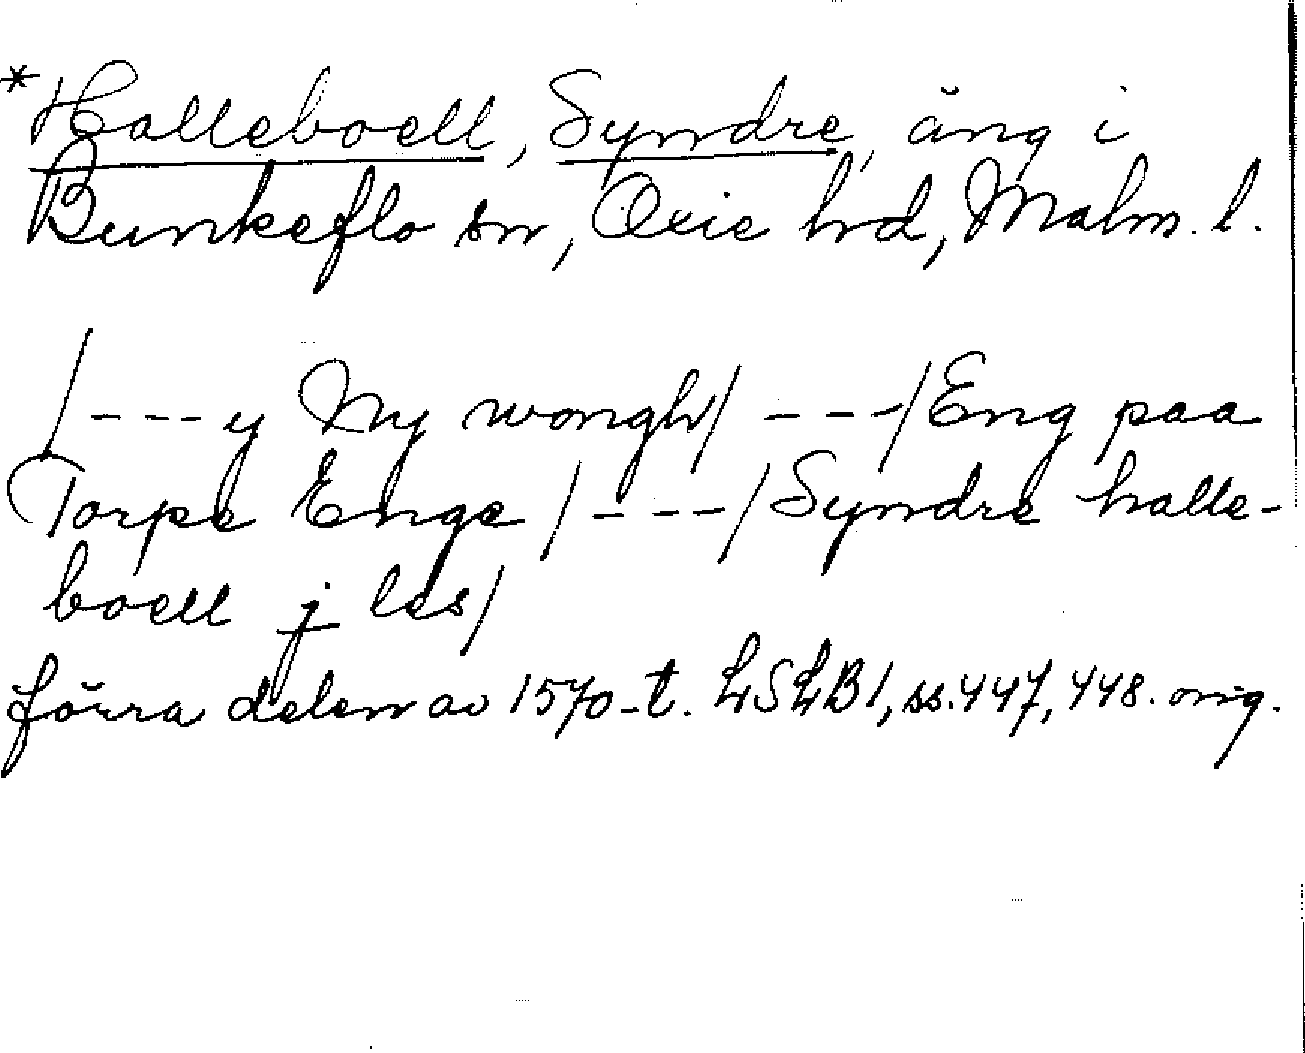 *Halleboell, Syndre, äng i
Bunkeflo sn, Oxie hd, Malm. l.
/---y Ny wongh/ ---/Eng paa
Torpe Enge /---/Syndre halle-
boell j les/
förra delen av 1570-t. LSLB1, ss. 447, 448. orig.